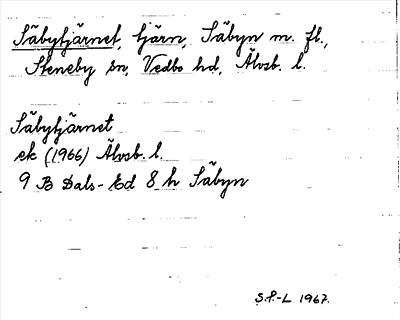 Säbytjärnet, tjärn, Säbyn m. fl.,
Steneby sn, Vedbo hd, Älvsb. l.
Säbytjärnet
ek (1966) Älvsb. l.
9 B Dals-Ed 8 h Säbyn
S.P.-L 1967.